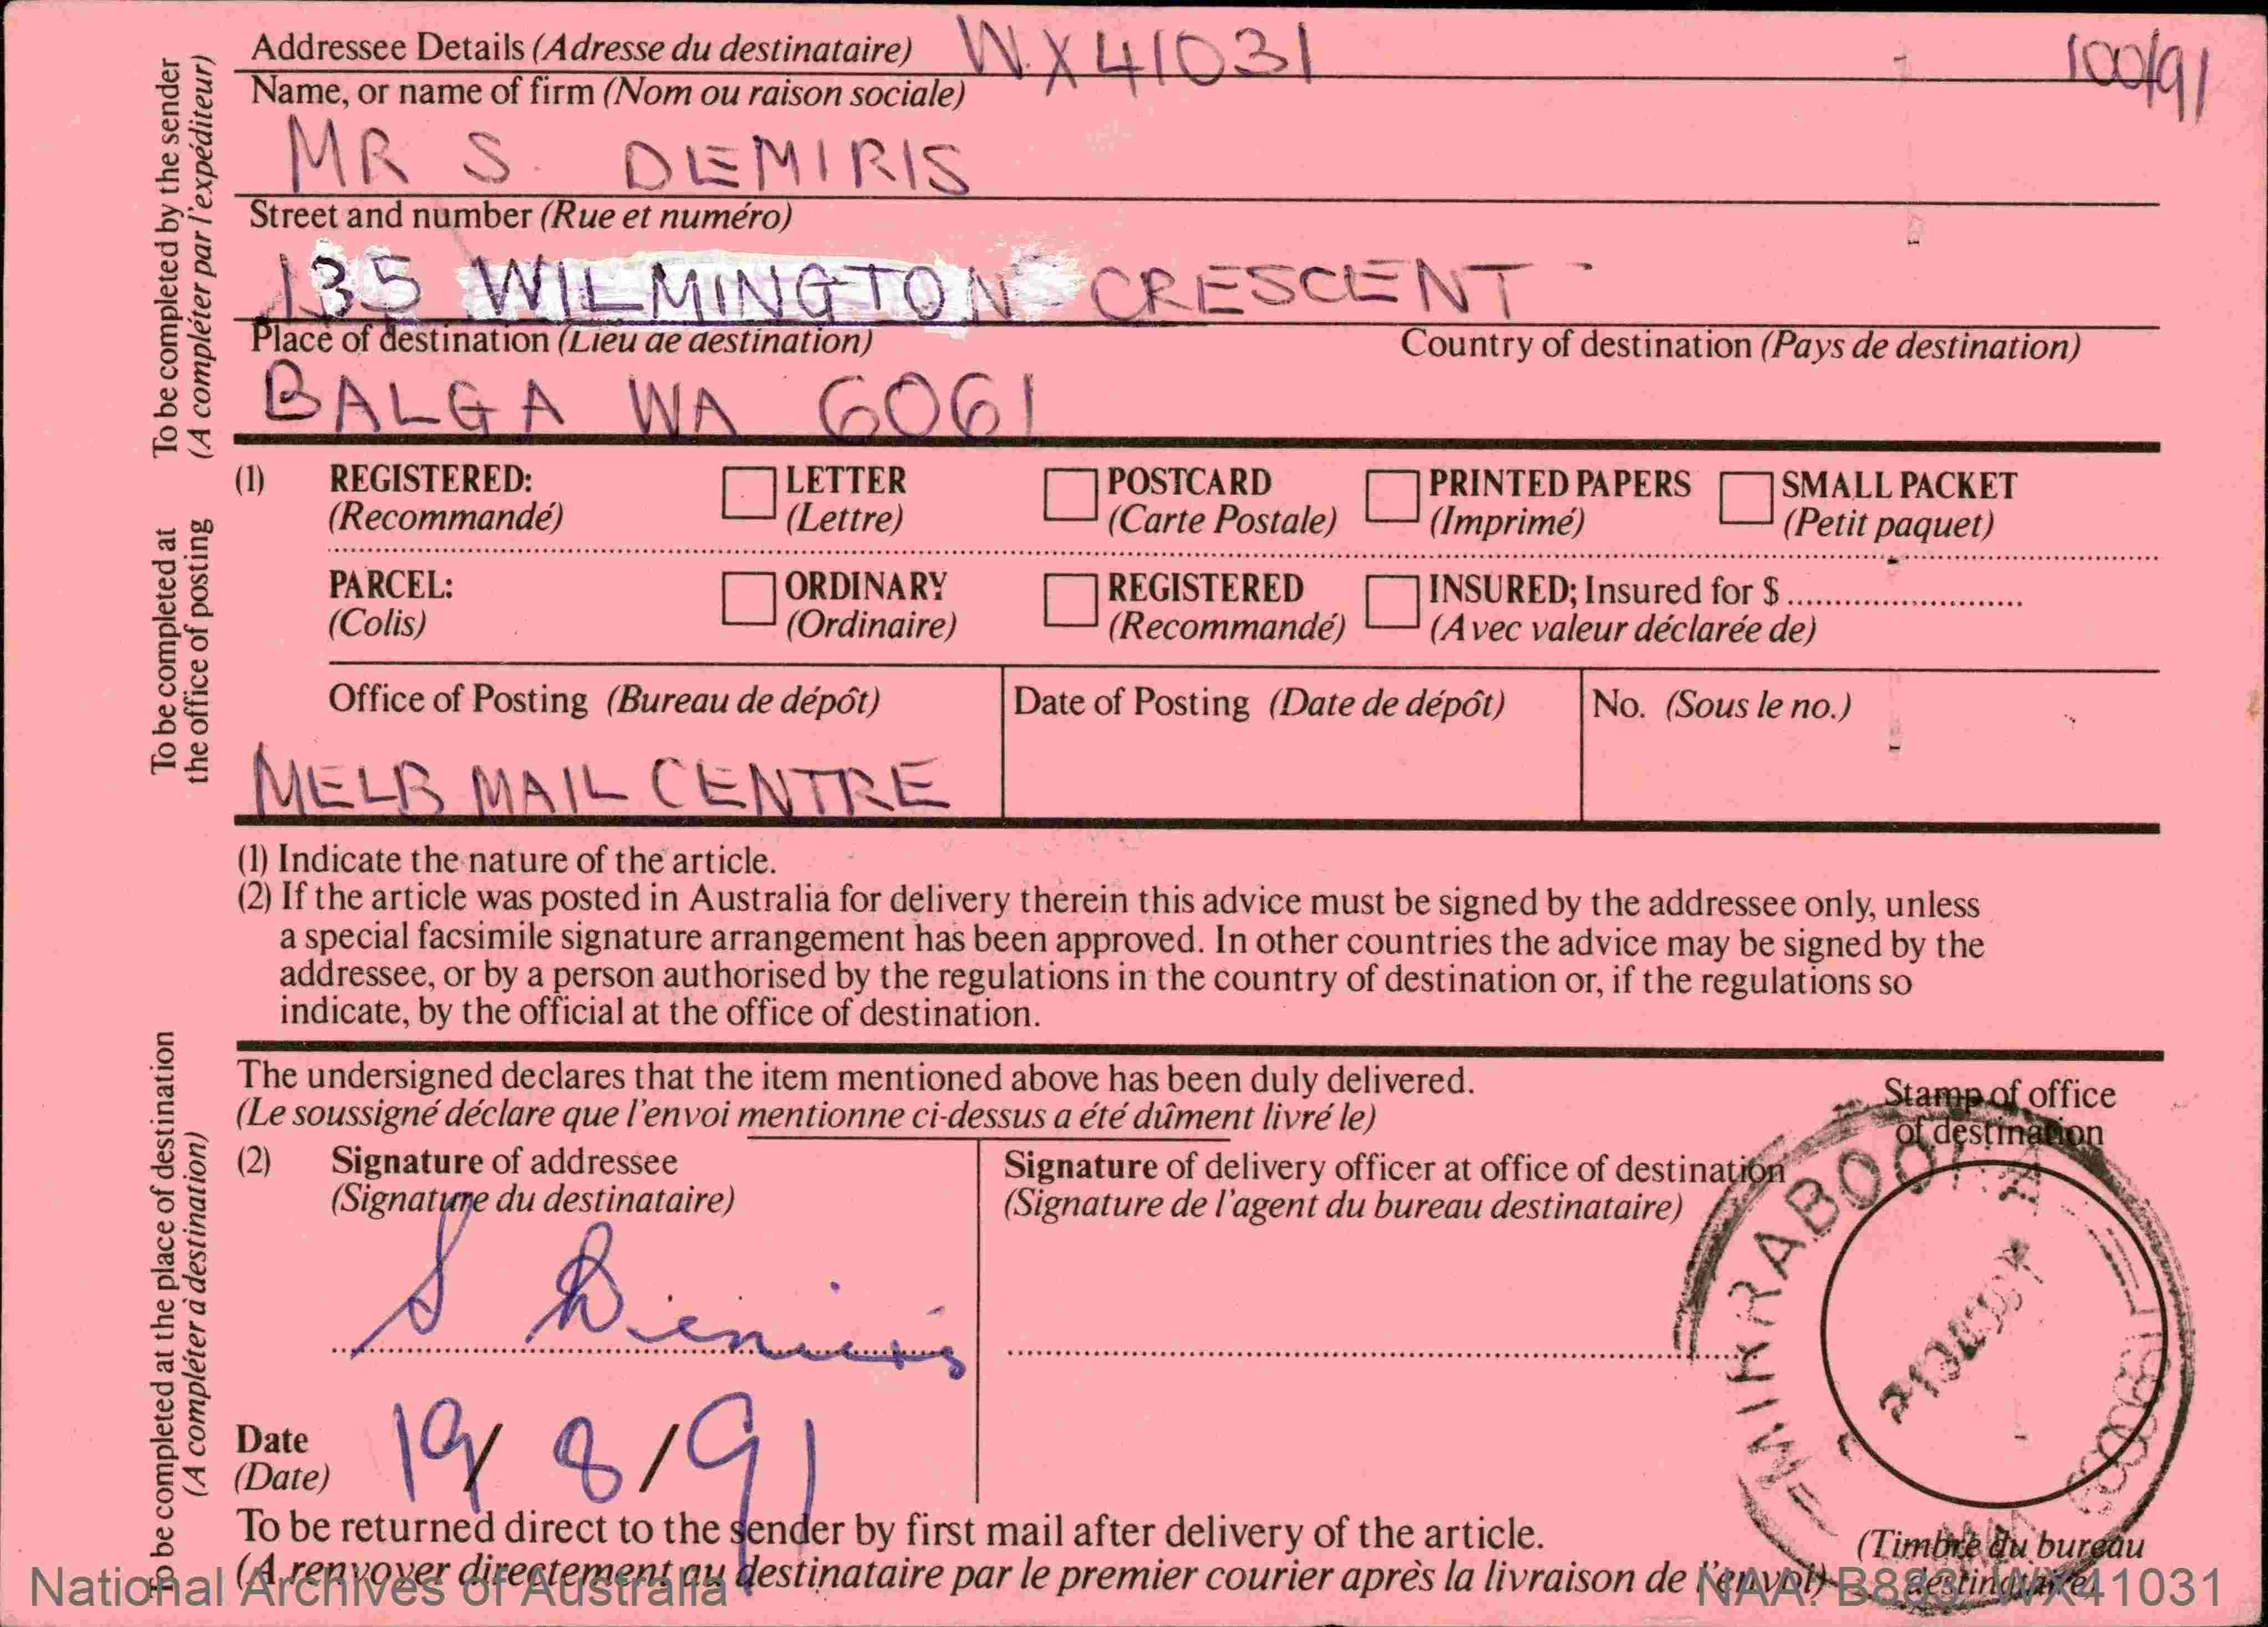 Addressee Details (Adresse du destinataire) WX41031 100/91
Name, or name of firm (Nom ou raison sociale)
MR S. DEMIRIS
Street and number (Rue et numéro)
135 WILMINGTON CRESCENT
Place of destination (Lieu de destination) Country of destination (Pays de destination)
BALGA WA 6061
To be completed by the sender
(A compléter par l'expéditeur)
(1) REGISTERED: LETTER POSTCARD PRINTED PAPERS SMALL PACKET
(Recommandé) (Lettre) (Carte Postale) (Imprimé) (Petit paquet)
PARCEL: ORDINARY REGISTERED INSURED; Insured for $
(Colis) (Ordinaire) (Recommandé) (Avec valeur déclarée de)
Office of Posting (Bureau de dépôt) Date of Posting (Date de dépôt) No. (Sous le no.)
MELB MAIL CENTRE
To be completed at
the office of posting
(1) Indicate the nature of the article.
(2) If the article was posted in Australia for delivery therein this advice must be signed by the addressee only, unless
a special facsimile signature arrangement has been approved. In other countries the advice may be signed by the
addressee, or by a person authorised by the regulations in the country of destination or, if the regulations so
indicate, by the official at the office of destination.
The undersigned declares that the item mentioned above has been duly delivered.
(Le soussigné déclare que l'envoi mentionne ci-dessus a été dûment livré le)
Stamp of office
of destination
(2) Signature of addressee Signature of delivery officer at office of destination
(Signature du destinataire) (Signature de l'agent du bureau destinataire)
S Demiris
MIRRABOOKA
Date 19/8/91
(Date)
To be completed at the place of destination
(A compléter à destination)
To be returned direct to the sender by first mail after delivery of the article.
(A renvoyer directement au destinataire par le premier courier après la livraison de l'envoi)
(Timbre du bureau
destinataire)
National Archives of Australia NAA: B883, WX41031